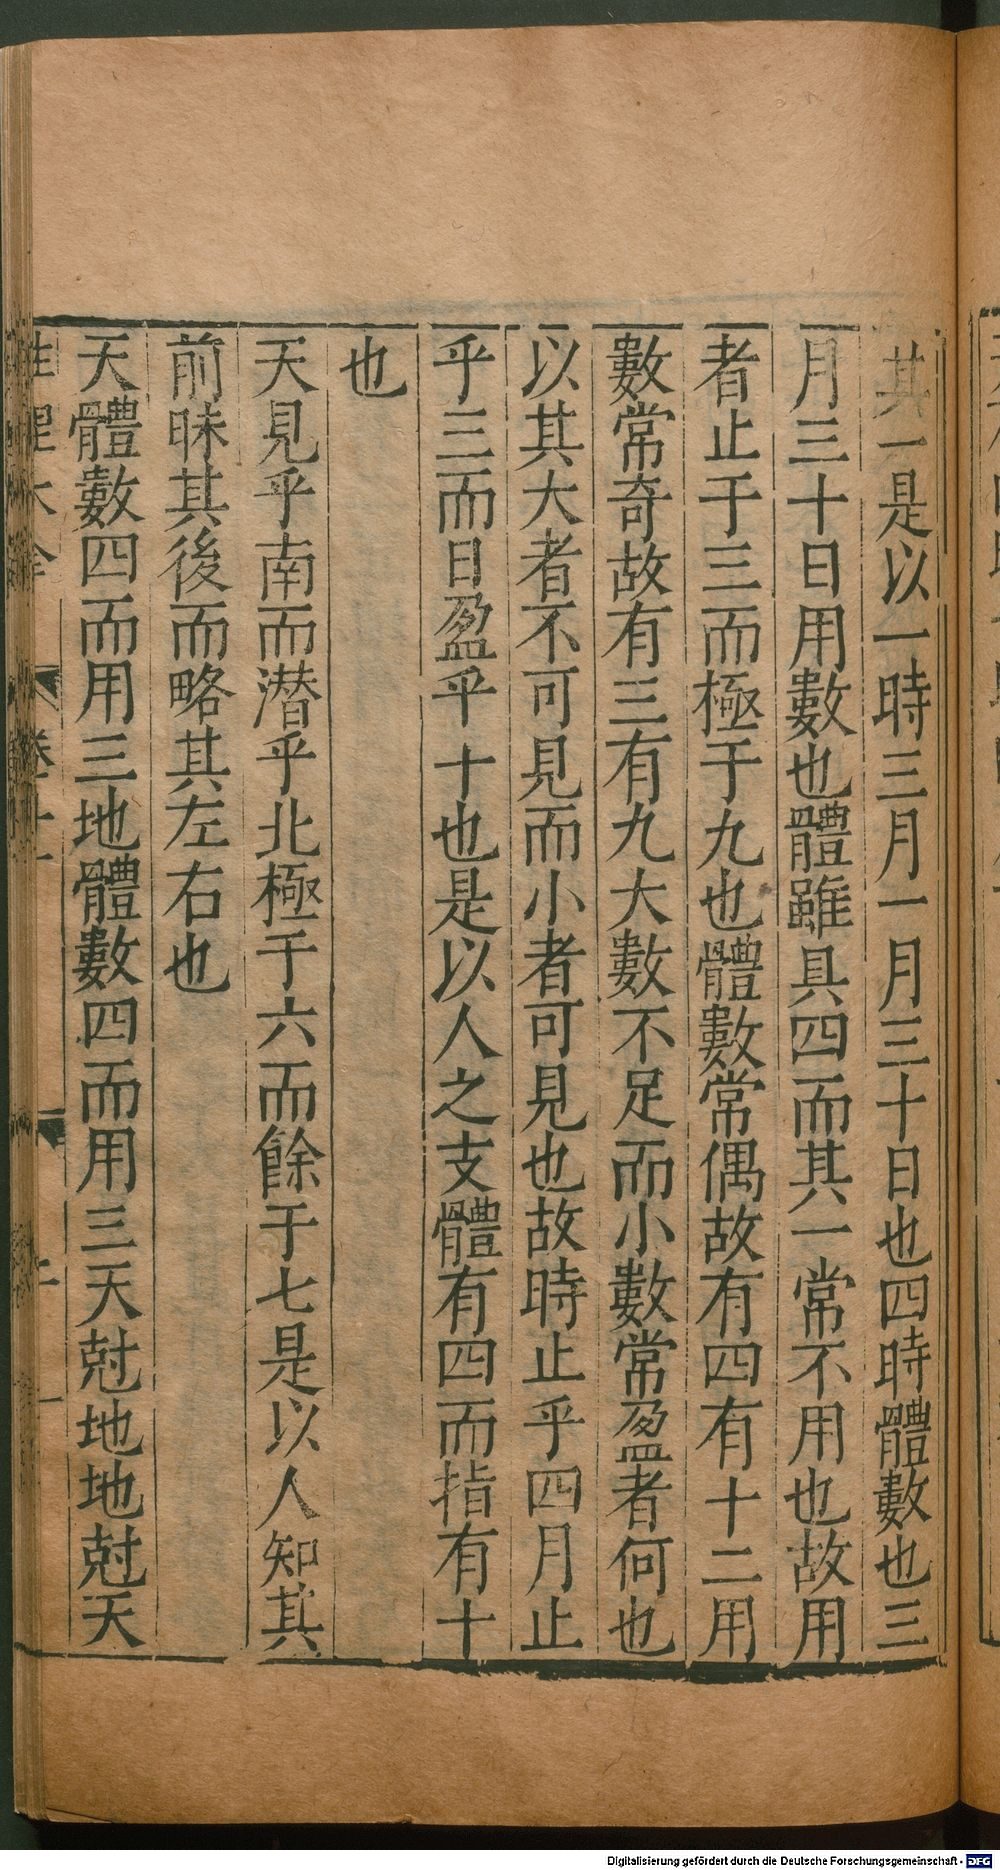 其一是以一時三月一月三十日也四時體數也三
月三十日用數也體雖具四而其一常不用也故用
者止于三而極于九也體數常偶故有四有十二用
數常奇故有三有九大數不足而小數常盈者何也
以其大者不可見而小者可見也故時止乎四月止
乎三而日盈乎十也是以人之支體有四而指有十
也
天見乎南而潛乎北極于六而餘于七是以人知其
前昧其後而略其左右也
天體數四而用三地體數四而用三天尅地地尅天
性理大全
Digitalisierung gefördert durch die Deutsche Forschungsgemeinschaft - DFG